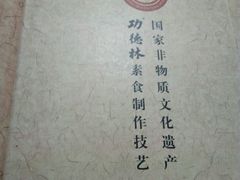 国家非物质文化遗产
功德林素食制作技艺